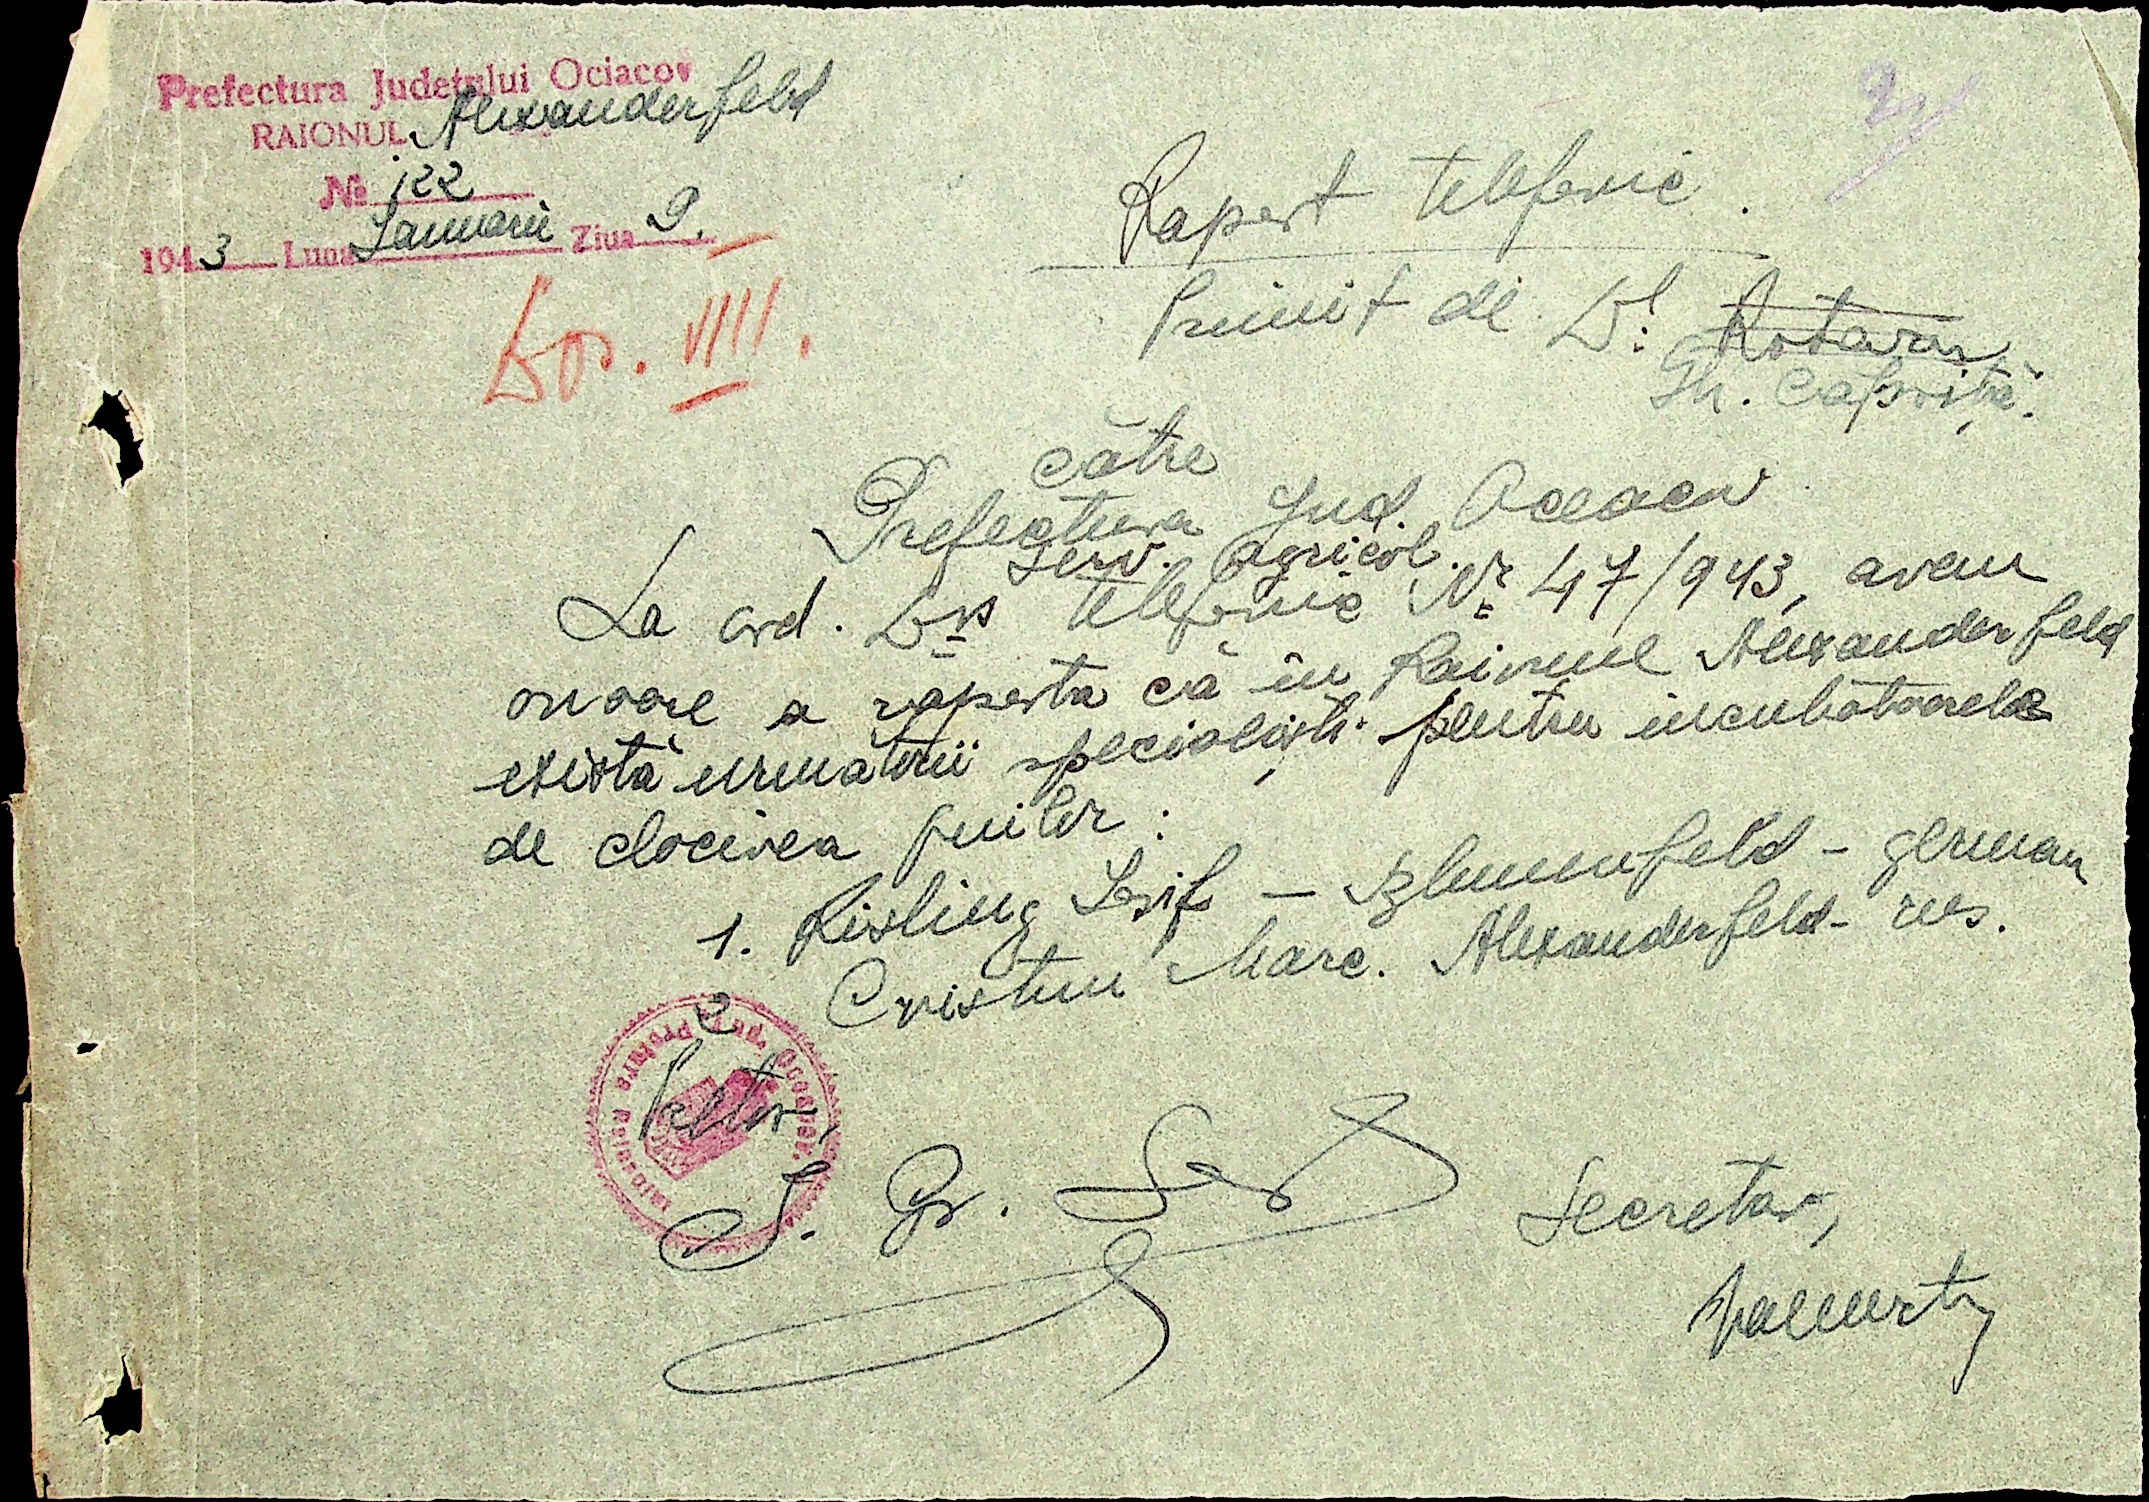 Prefectura Judeţului Ociacov
RAIONUL Alexanderfeld
№ 122
1943 Luna Ianuarie Ziua 9.
Dos. VIII.
Raport telefonic.
Primit de Dl. Rotaru
Gh. Capriță.
către
Prefectura Jud. Oceacov
Serv. Agricol.
La ord. Dvs telefonic Nr 47/943, avem
onoare a raporta că în Raionul Alexanderfeld
există următorii specialiști pentru incubatoarele
de clocirea puilor:
1. Kisling Iosif – Blumenfeld – german
2 Cristun Marc. Alexanderfeld – rus.
Pretor,
Gr.
Secretar,